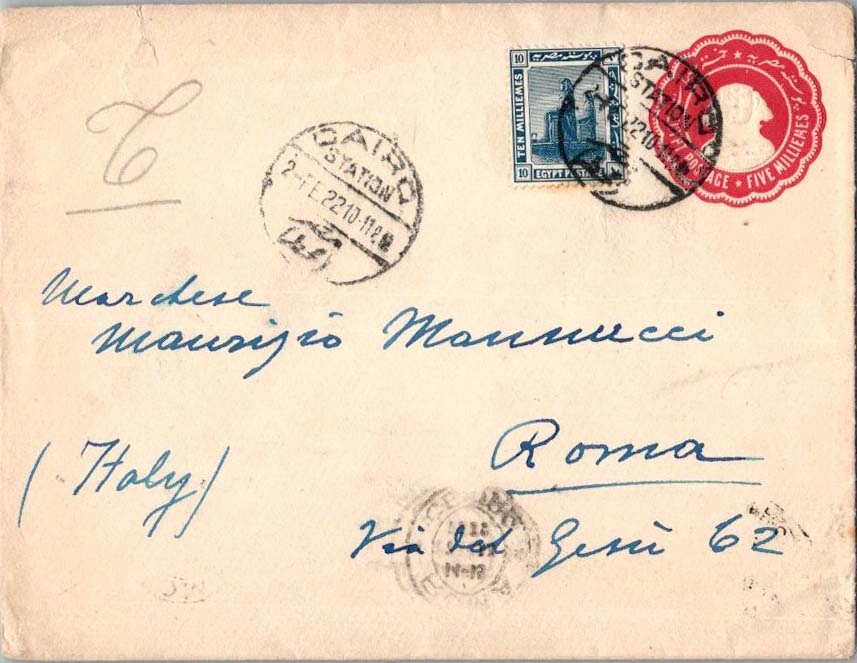 10 بوستة مصرية
TEN MILLIEMES
10 EGYPT POSTAGE
بوستة مصرية
POSTAGE ★ FIVE MILLIEMES
CAIRO
STATION
CAIRO
STATION
2-FE.22 10-11
Marchese
Maurizio Mannucci
Roma
(Italy)
Via del Gesù 62